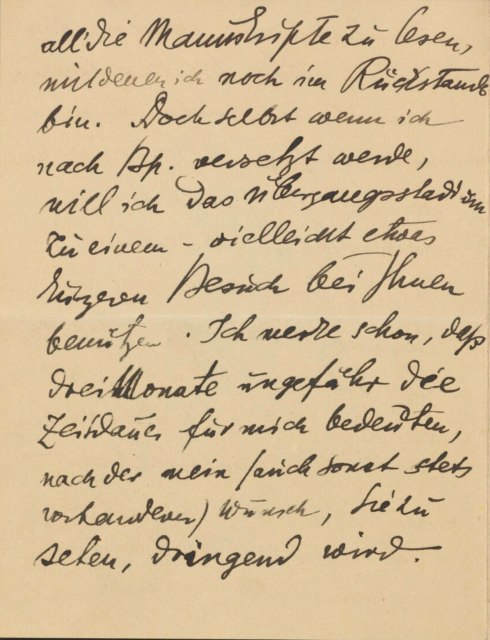 all' die Manuskripte zu lesen,
mit denen ich noch im Rückstande
bin. Doch selbst wenn ich
nach Bp. versetzt werde,
will ich das Übergangsstadium
zu einem – vielleicht etwas
kürzeren Besuch bei Ihnen
benützen. Ich merke schon, daß
drei Monate ungefähr die
Zeitdauer für mich bedeuten,
nach der mein (auch sonst stets
vorhandener) Wunsch, Sie zu
sehen, dringend wird.